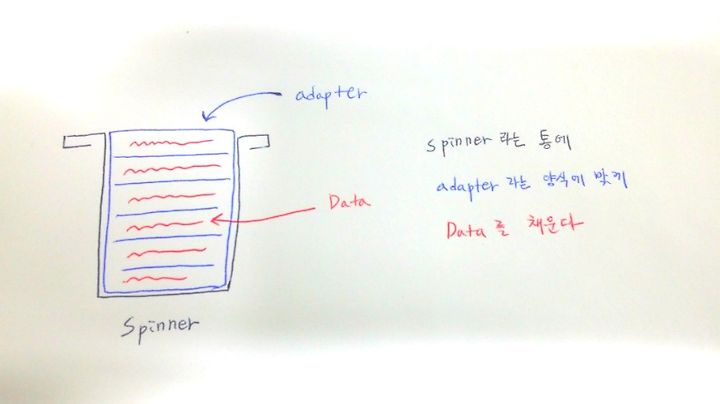 adapter
Data
Spinner
Spinner 라는 통에
adapter 라는 양식에 맞게
Data를 채운다